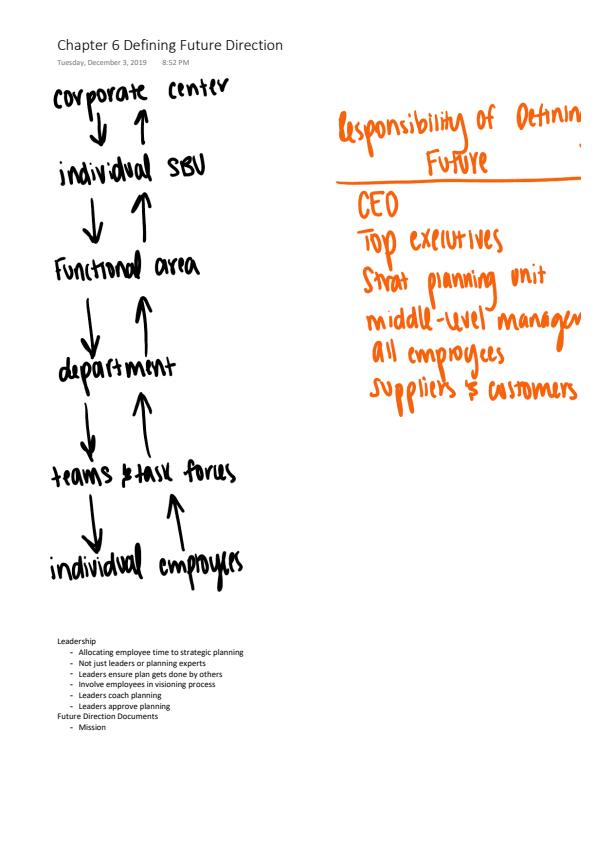 Chapter 6 Defining Future Direction
Tuesday, December 3, 2019 8:52 PM
corporate center
individual SBU
Functional area
department
teams & task forces
individual employees
Responsibility of Definin
Future
CEO
Top executives
Strat planning unit
middle-level manager
all employees
suppliers & customers
Leadership
- Allocating employee time to strategic planning
- Not just leaders or planning experts
- Leaders ensure plan gets done by others
- Involve employees in visioning process
- Leaders coach planning
- Leaders approve planning
Future Direction Documents
- Mission